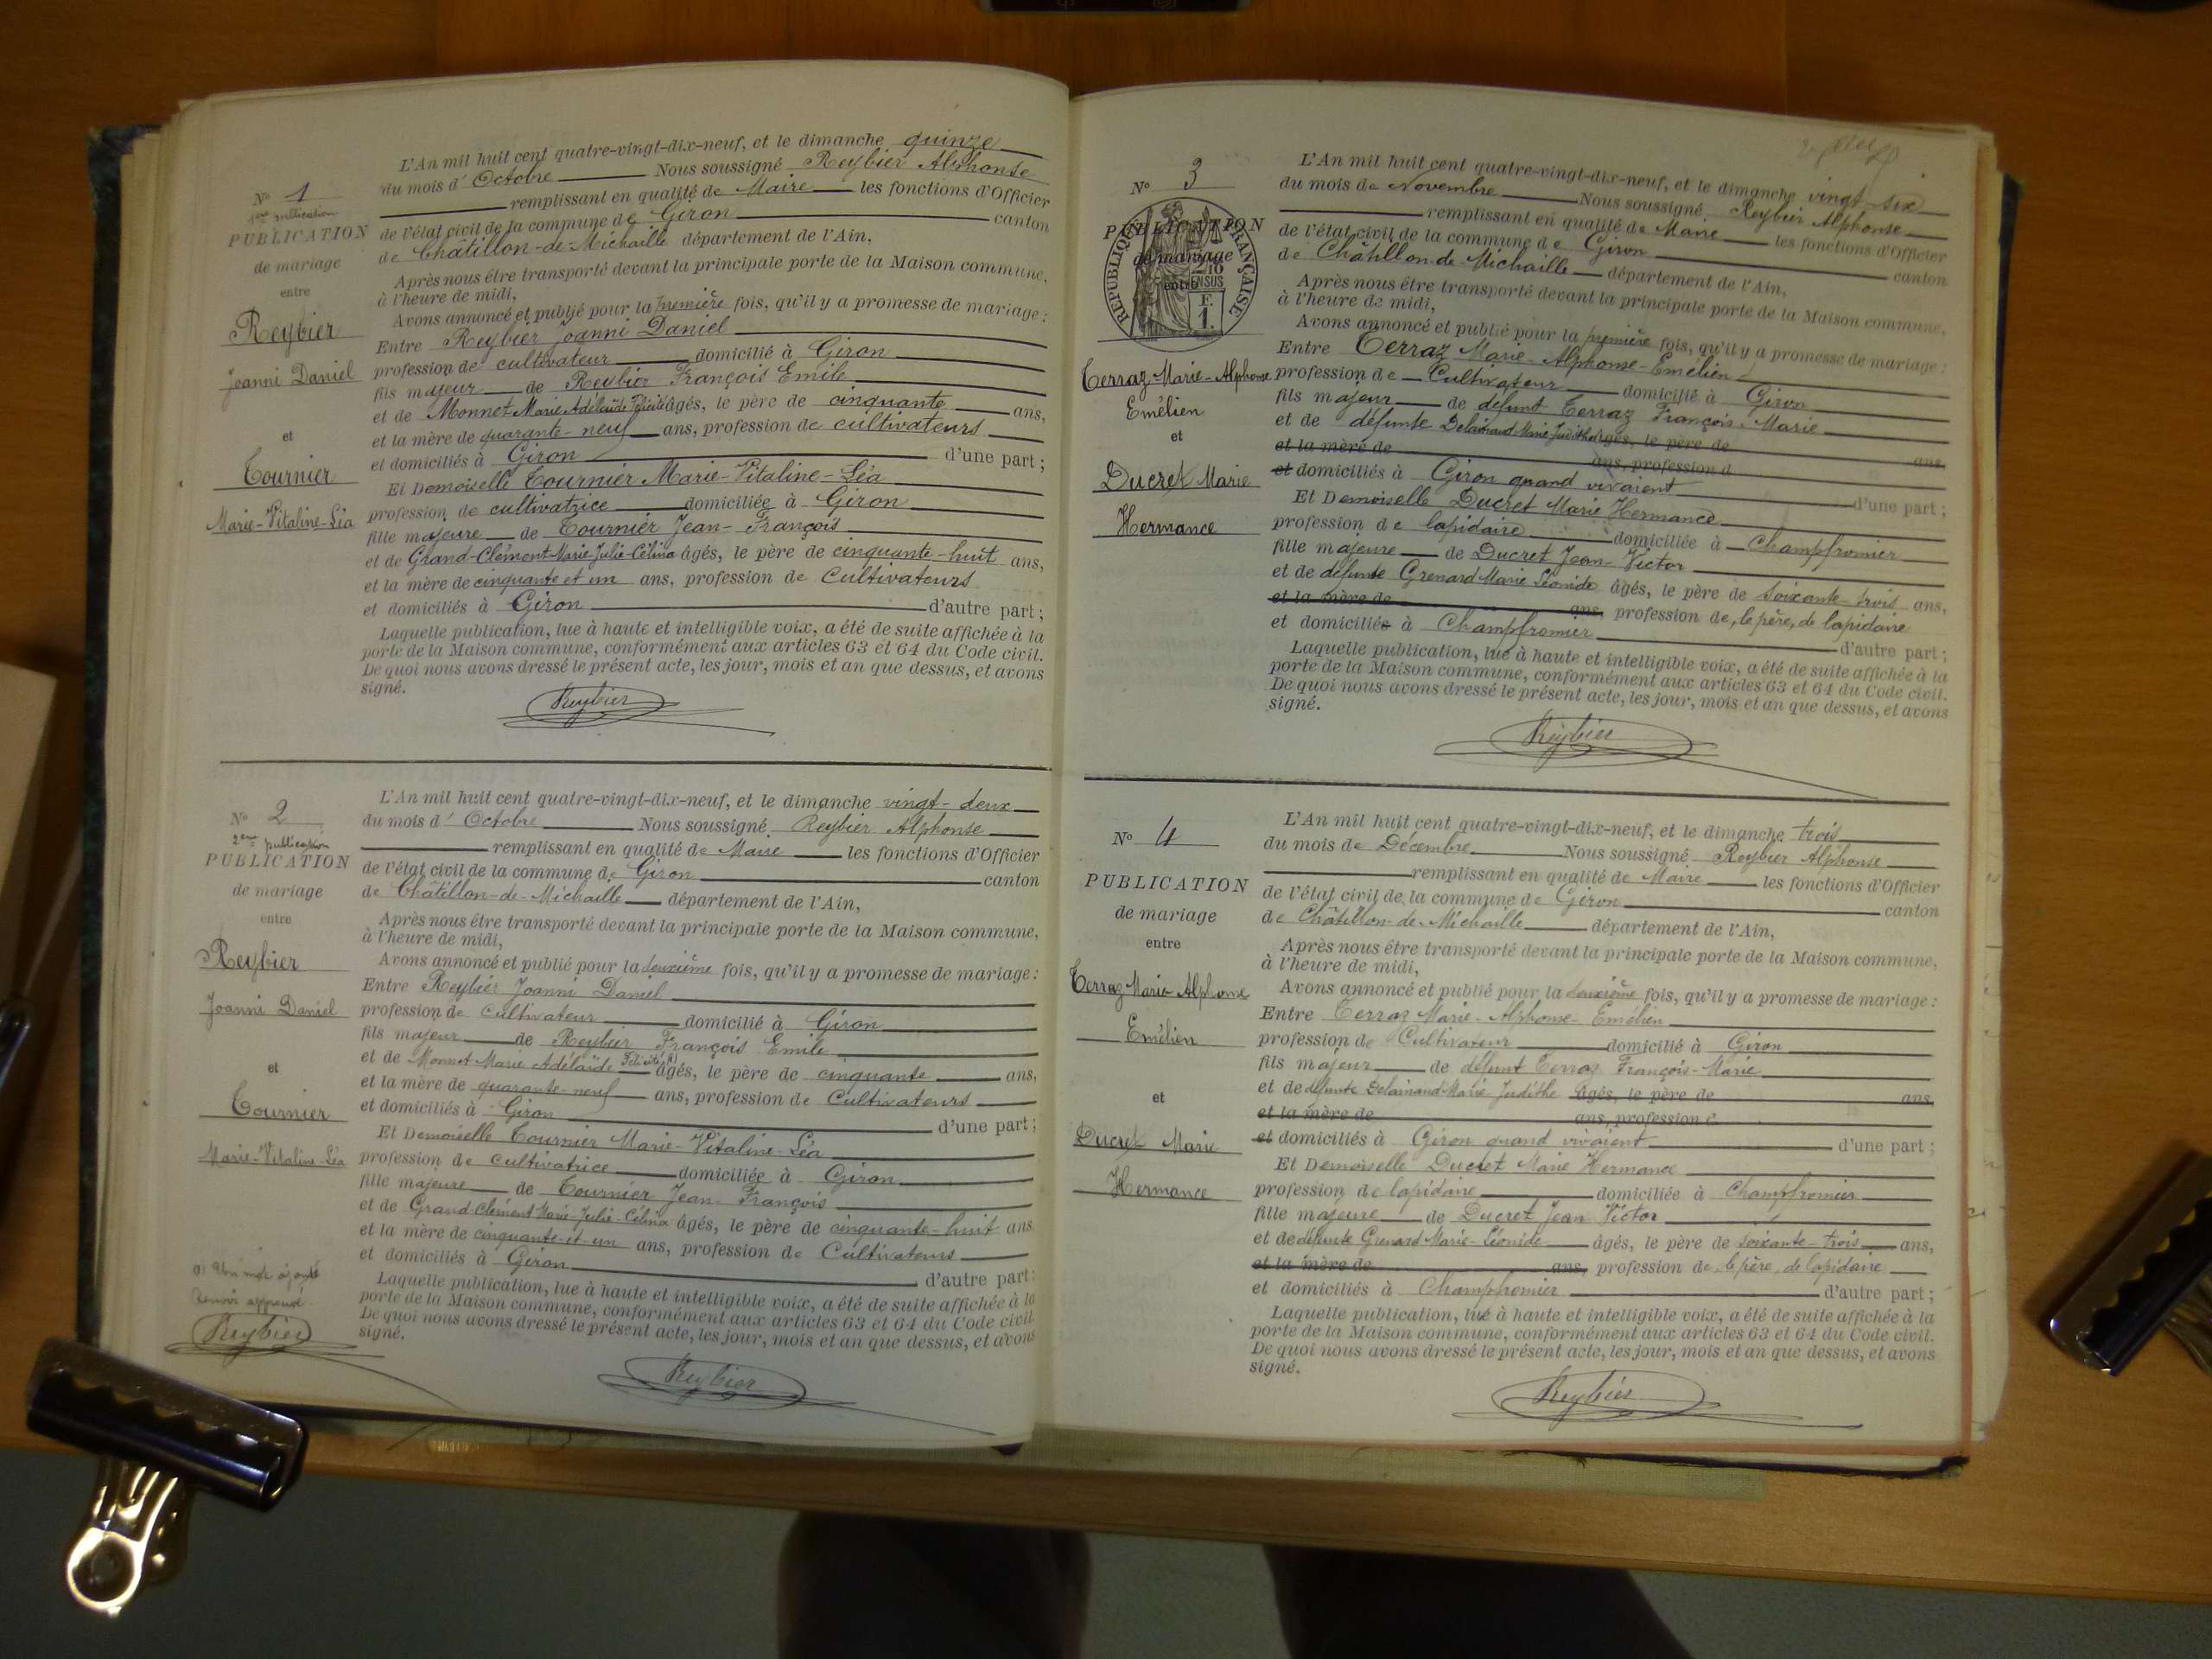 N° 1
1ère publication
PUBLICATION
de mariage
entre
Reybier
Joanni Daniel
et
Tournier
Marie-Vitaline-Léa
L'An mil huit cent quatre-vingt-dix-neuf, et le dimanche quinze
du mois d'Octobre Nous soussigné Reybier Alphonse
remplissant en qualité de Maire les fonctions d'Officier
de l'état civil de la commune de Giron canton
de Châtillon-de-Michaille département de l'Ain,
Après nous être transporté devant la principale porte de la Maison commune,
à l'heure de midi,
Avons annoncé et publié pour la première fois, qu'il y a promesse de mariage :
Entre Reybier Joanni Daniel
profession de cultivateur domicilié à Giron
fils majeur de Reybier François Emile
et de Monnet Marie Adélaïde Félicité âgés, le père de cinquante ans,
et la mère de quarante-neuf ans, profession de cultivateurs
et domiciliés à Giron d'une part ;
Et Demoiselle Tournier Marie-Vitaline-Léa
profession de cultivatrice domiciliée à Giron
fille majeure de Tournier Jean-François
et de Grand-Clément Marie-Julie-Célina âgés, le père de cinquante-huit ans,
et la mère de cinquante et un ans, profession de Cultivateurs
et domiciliés à Giron d'autre part ;
Laquelle publication, lue à haute et intelligible voix, a été de suite affichée à la
porte de la Maison commune, conformément aux articles 63 et 64 du Code civil.
De quoi nous avons dressé le présent acte, les jour, mois et an que dessus, et avons
signé.
Reybier
N° 2
2ème publication
PUBLICATION
de mariage
entre
Reybier
Joanni Daniel
et
Tournier
Marie-Vitaline-Léa
(1) Un mot ajouté
Renvoi approuvé
Reybier
L'An mil huit cent quatre-vingt-dix-neuf, et le dimanche vingt-deux
du mois d'Octobre Nous soussigné Reybier Alphonse
remplissant en qualité de Maire les fonctions d'Officier
de l'état civil de la commune de Giron canton
de Châtillon-de-Michaille département de l'Ain,
Après nous être transporté devant la principale porte de la Maison commune,
à l'heure de midi,
Avons annoncé et publié pour la deuxième fois, qu'il y a promesse de mariage :
Entre Reybier Joanni Daniel
profession de cultivateur domicilié à Giron
fils majeur de Reybier François Emile
et de Monnet Marie Adélaïde Félicité (1) âgés, le père de cinquante ans,
et la mère de quarante-neuf ans, profession de Cultivateurs
et domiciliés à Giron d'une part ;
Et Demoiselle Tournier Marie-Vitaline-Léa
profession de cultivatrice domiciliée à Giron
fille majeure de Tournier Jean François
et de Grand-Clément Marie-Julie-Célina âgés, le père de cinquante-huit ans
et la mère de cinquante-et-un ans, profession de Cultivateurs
et domiciliés à Giron d'autre part ;
Laquelle publication, lue à haute et intelligible voix, a été de suite affichée à la
porte de la Maison commune, conformément aux articles 63 et 64 du Code civil.
De quoi nous avons dressé le présent acte, les jour, mois et an que dessus, et avons
signé.
Reybier
N° 3
PUBLICATION
de mariage
entre
RÉPUBLIQUE FRANÇAISE
2/10
EN SUS
F.
1.
Terraz-Marie-Alphonse
Emélien
et
Ducret Marie
Hermance
L'An mil huit cent quatre-vingt-dix-neuf, et le dimanche vingt six
du mois de Novembre Nous soussigné Reybier Alphonse
remplissant en qualité de Maire les fonctions d'Officier
de l'état civil de la commune de Giron canton
de Châtillon-de-Michaille département de l'Ain,
Après nous être transporté devant la principale porte de la Maison commune,
à l'heure de midi,
Avons annoncé et publié pour la première fois, qu'il y a promesse de mariage :
Entre Terraz Marie-Alphonse-Emélien
profession de Cultivateur domicilié à Giron
fils majeur de défunt Terraz François-Marie
et de défunte Delainaud Marie Judithe âgés, le père de ans,
et la mère de ans, profession d
et domiciliés à Giron quand vivaient d'une part ;
Et Demoiselle Ducret Marie Hermance
profession de lapidaire domiciliée à Champfromier
fille majeure de Ducret Jean-Victor
et de défunte Grenard Marie Léonide âgés, le père de soixante-trois ans,
et la mère de ans, profession de, le père, de lapidaire
et domiciliés à Champfromier d'autre part ;
Laquelle publication, lue à haute et intelligible voix, a été de suite affichée à la
porte de la Maison commune, conformément aux articles 63 et 64 du Code civil.
De quoi nous avons dressé le présent acte, les jour, mois et an que dessus, et avons
signé.
Reybier
N° 4
PUBLICATION
de mariage
entre
Terraz Marie Alphonse
Emélien
et
Ducret Marie
Hermance
L'An mil huit cent quatre-vingt-dix-neuf, et le dimanche trois
du mois de Décembre Nous soussigné Reybier Alphonse
remplissant en qualité de Maire les fonctions d'Officier
de l'état civil de la commune de Giron canton
de Châtillon-de-Michaille département de l'Ain,
Après nous être transporté devant la principale porte de la Maison commune,
à l'heure de midi,
Avons annoncé et publié pour la deuxième fois, qu'il y a promesse de mariage :
Entre Terraz Marie-Alphonse-Emélien
profession de Cultivateur domicilié à Giron
fils majeur de défunt Terraz François-Marie
et de défunte Delainaud Marie Judithe âgés, le père de ans,
et la mère de ans, profession d
et domiciliés à Giron quand vivaient d'une part ;
Et Demoiselle Ducret Marie Hermance
profession de lapidaire domiciliée à Champfromier
fille majeure de Ducret Jean Victor
et de défunte Grenard Marie-Léonide âgés, le père de soixante-trois ans,
et la mère de ans, profession de, le père, de lapidaire
et domiciliés à Champfromier d'autre part ;
Laquelle publication, lue à haute et intelligible voix, a été de suite affichée à la
porte de la Maison commune, conformément aux articles 63 et 64 du Code civil.
De quoi nous avons dressé le présent acte, les jour, mois et an que dessus, et avons
signé.
Reybier